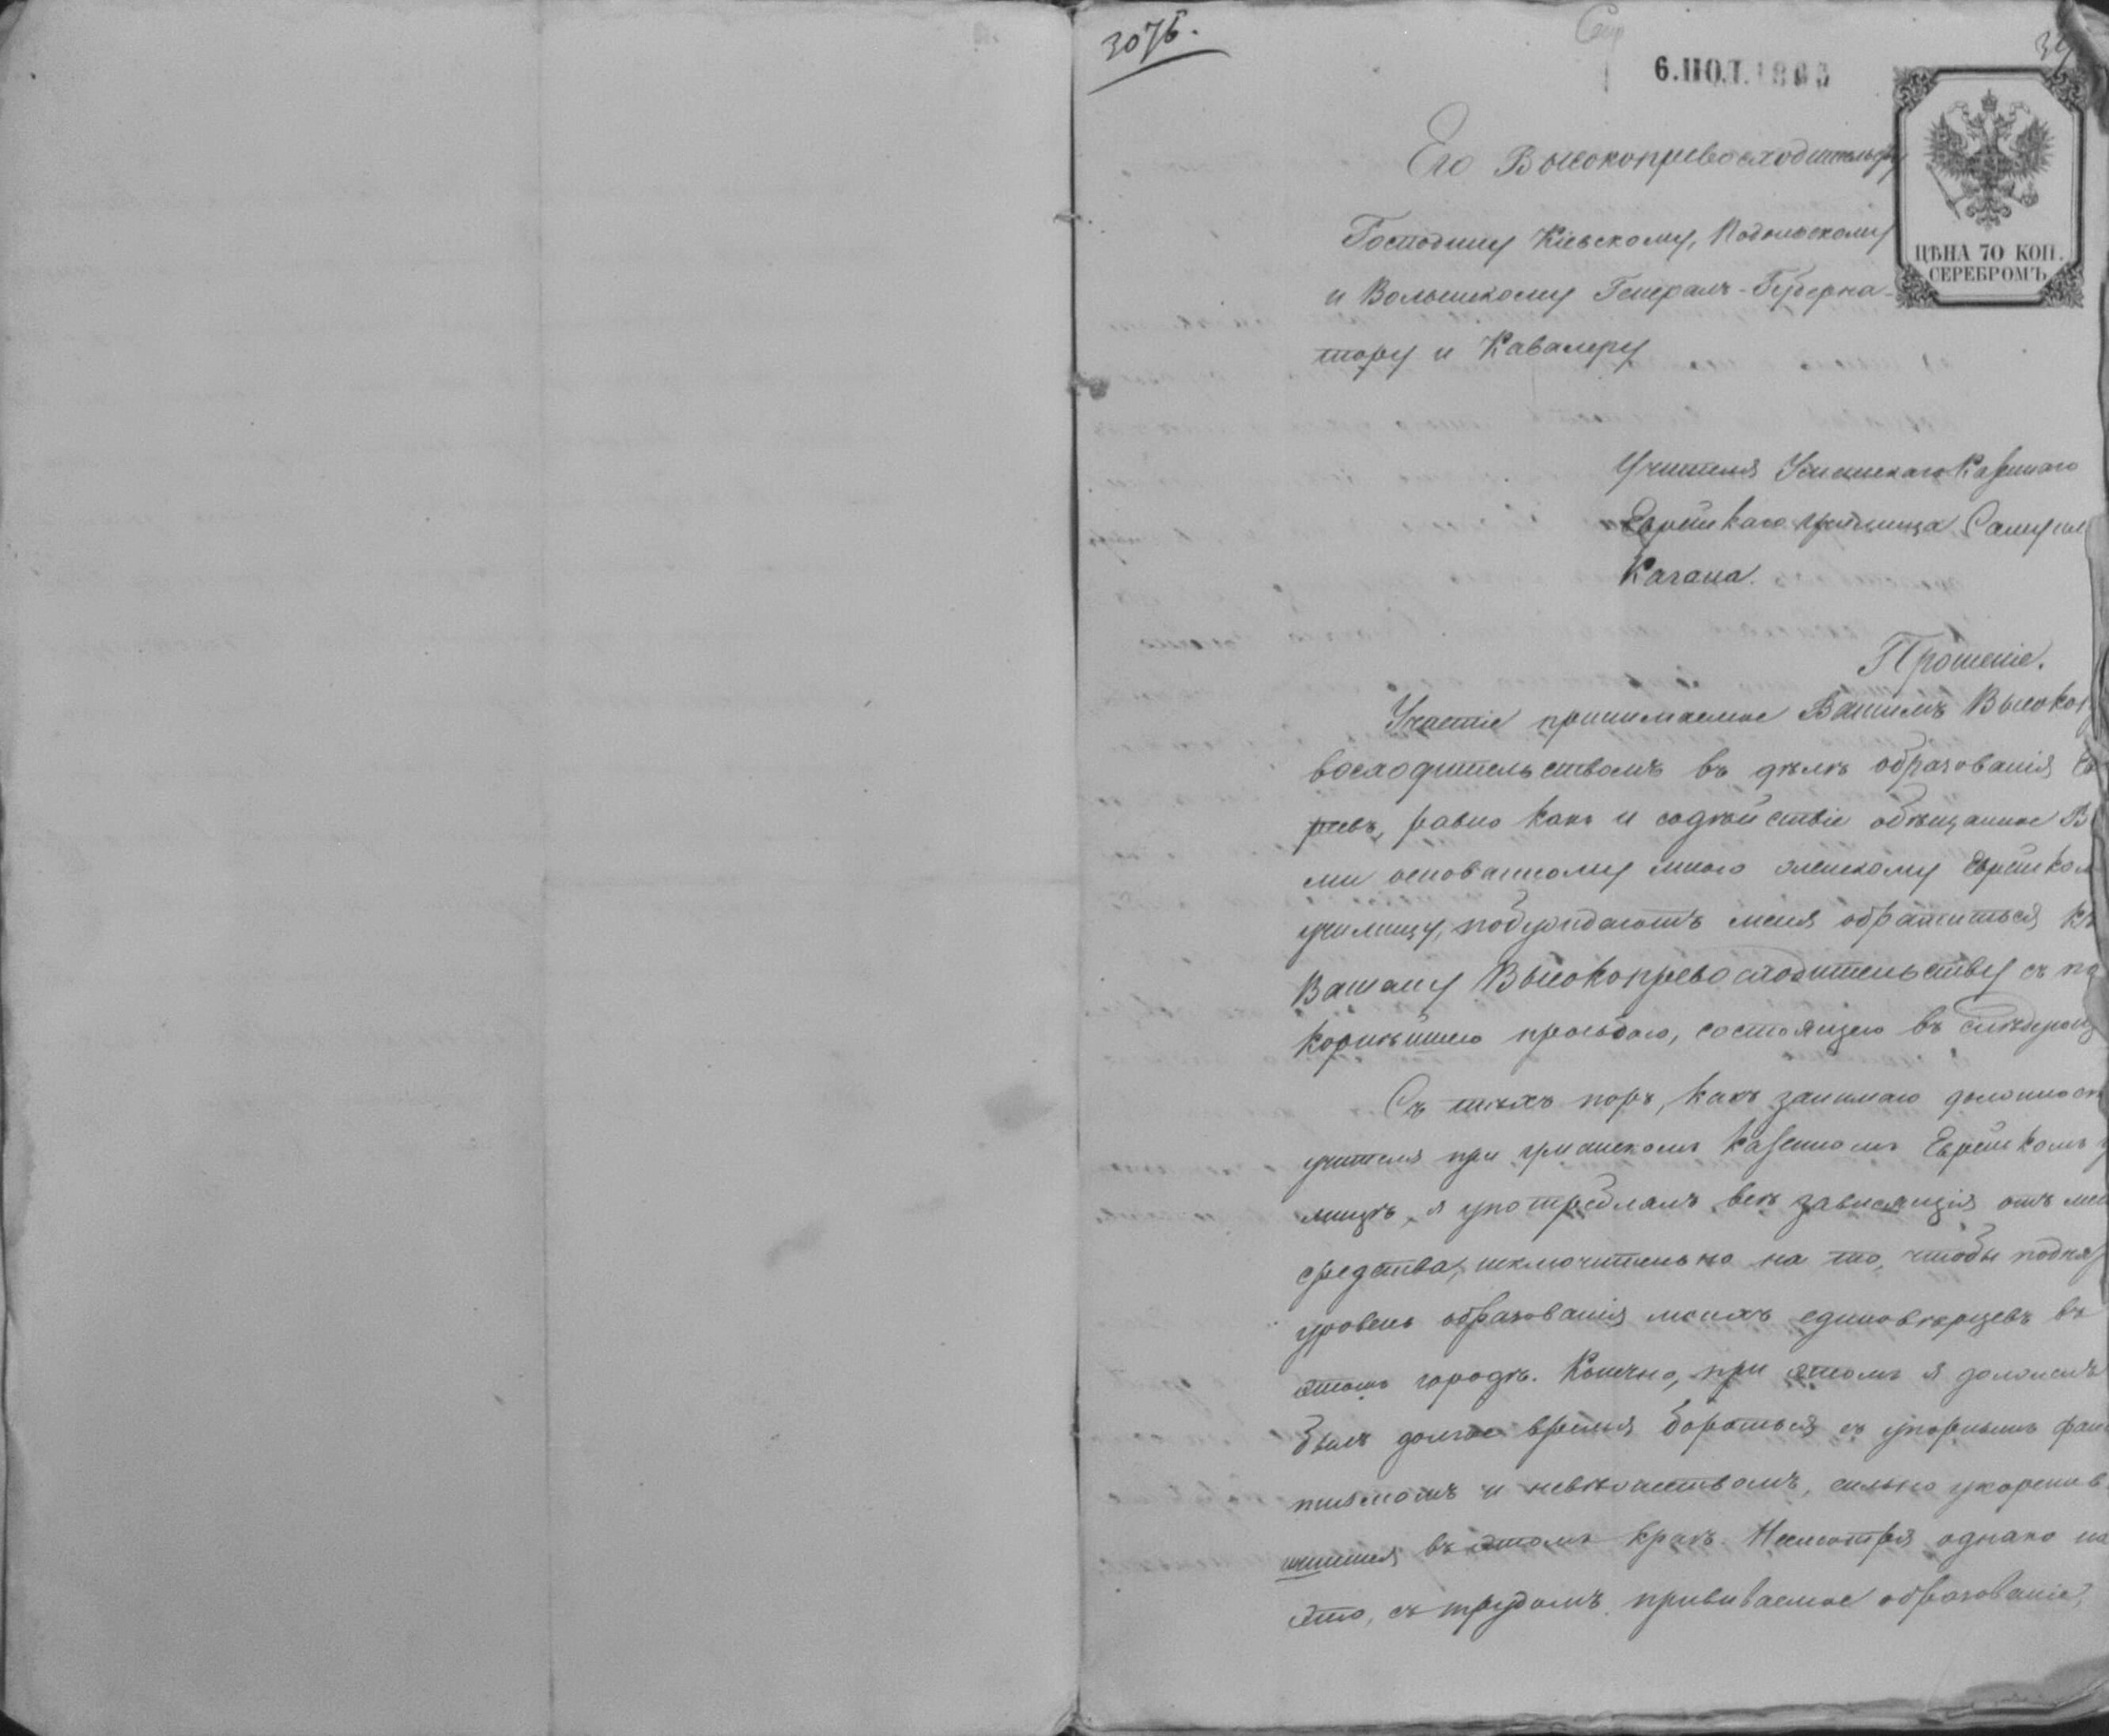 3075.
6.ІЮЛ.1865
Его Высокопревосходительству
ЦѢНА 70 КОП.
СЕРЕБРОМЪ
Господину Кіевскому, Подольскому
и Волынскому Генералъ-Губерна-
тору и Кавалеру
Учителя Уманскаго Казеннаго
Еврейскаго Училища Самуила
Кагана.
Прошеніе.
Участіе принимаемое Вашимъ Высокоп
восходительствомъ въ дѣлѣ образованія Ев
реевъ, равно какъ и содѣйствіе обѣщанное В
ми основанному мною женскому Еврейском
училищу, побуждаютъ меня обратиться къ
Вашему Высокопревосходительству съ по
корнѣйшею просьбою, состоящею въ слѣдующ
Съ тѣхъ поръ, какъ занимаю должност
учителя при уманскомъ казенномъ Еврейскомъ у
лищѣ, я употреблялъ всѣ зависящія отъ мен
средства, исключительно на то, чтобы поднят
уровень образованія моихъ единовѣрцевъ въ
этомъ городѣ. Конечно, при этомъ я долженъ
былъ долгое время бороться съ упорнымъ фана
тизмомъ и невѣжествомъ, сильно укоренив
шимися въ этомъ краѣ. Несмотря однако на
это, съ трудомъ прививаемое образованіе,